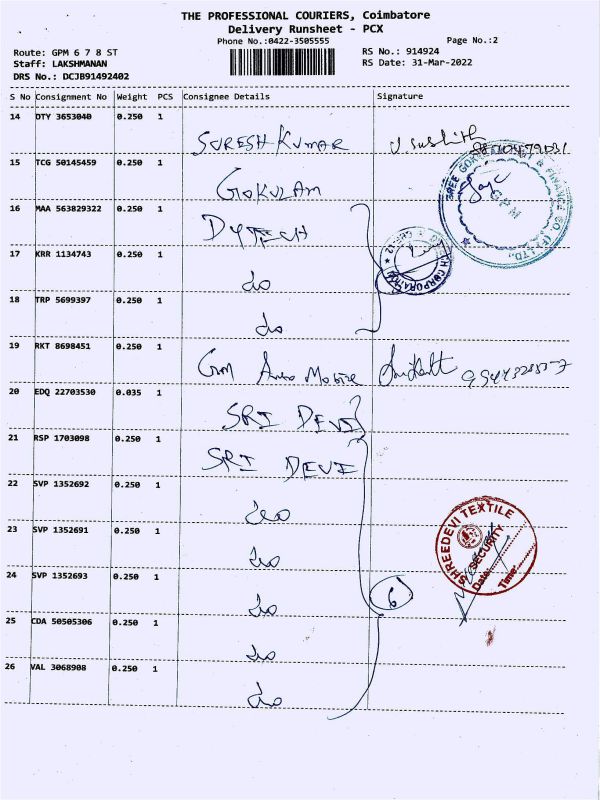 THE PROFESSIONAL COURIERS, Coimbatore
Delivery Runsheet - PCX
Phone No.:0422-3505555
Page No.:2
Route: GPM 6 7 8 ST
RS No.: 914924
Staff: LAKSHMANAN
RS Date: 31-Mar-2022
DRS No.: DCJB91492402
S No Consignment No Weight PCS Consignee Details Signature
14 DTY 3653040 0.250 1 SURESH KUMAR
15 TCG 50145459 0.250 1 GOKULAM
16 MAA 563829322 0.250 1 DYTECH
17 KRR 1134743 0.250 1 do
18 TRP 5699397 0.250 1 do
19 RKT 8698451 0.250 1
20 EDQ 22703530 0.035 1 SRI DEVI
21 RSP 1703098 0.250 1 SRI DEVI
22 SVP 1352692 0.250 1 do
23 SVP 1352691 0.250 1 do
24 SVP 1352693 0.250 1 do 6
25 CDA 50505306 0.250 1 do
26 VAL 3068908 0.250 1 do
GPM
SHREEDEVI TEXTILE
SECURITY
Date:
Time: